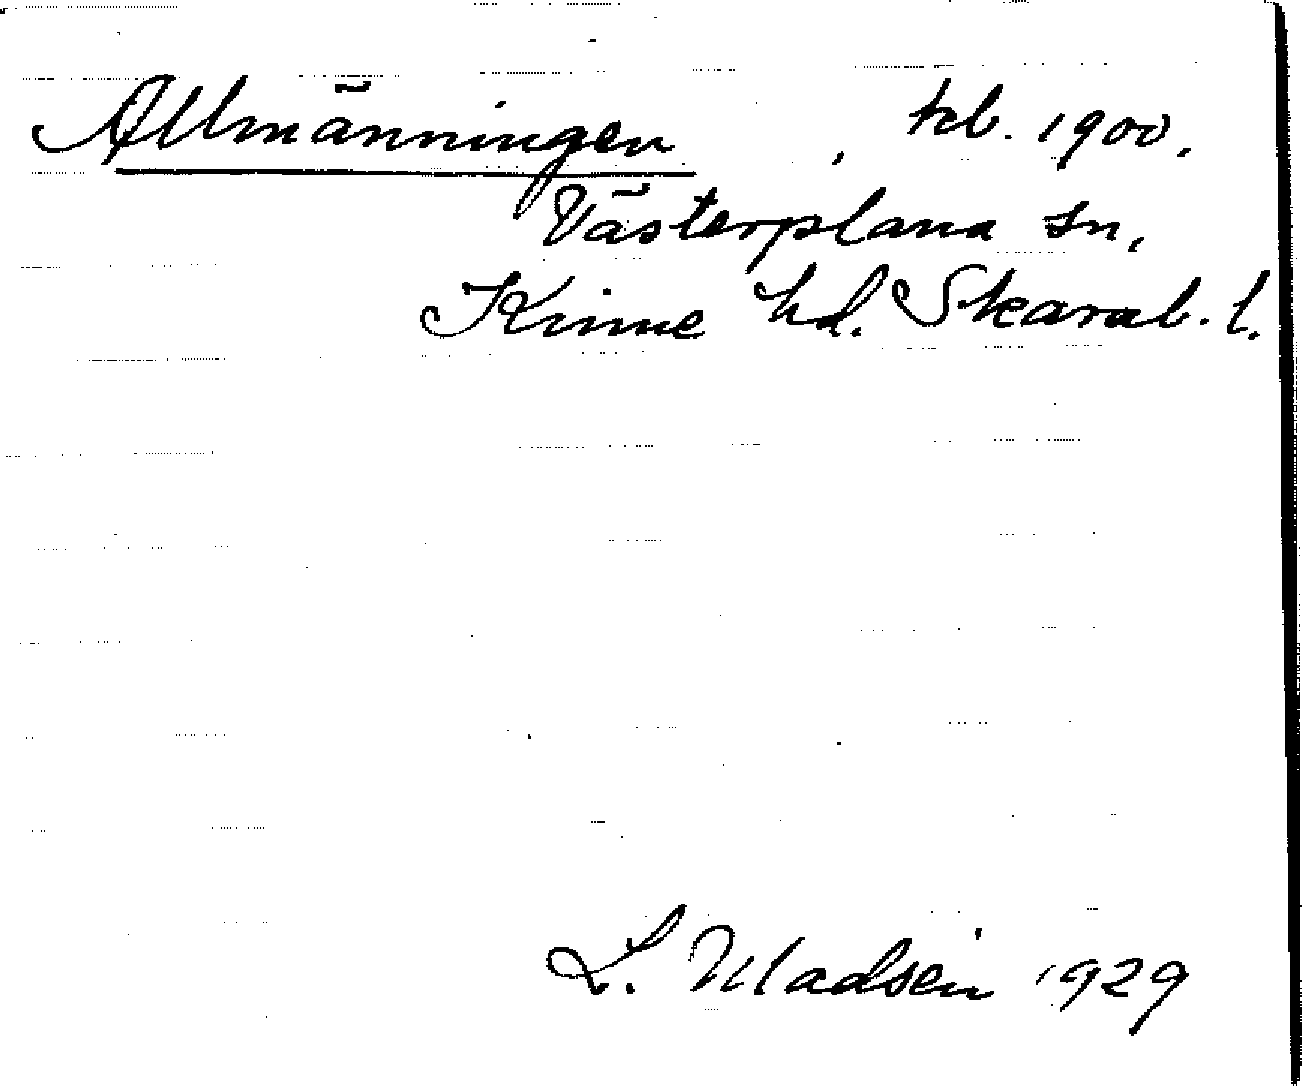 Allmänningen , tcb. 1900.
Västerplana sn,
Kinne hd. Skarab. l.
L. Madsén 1929